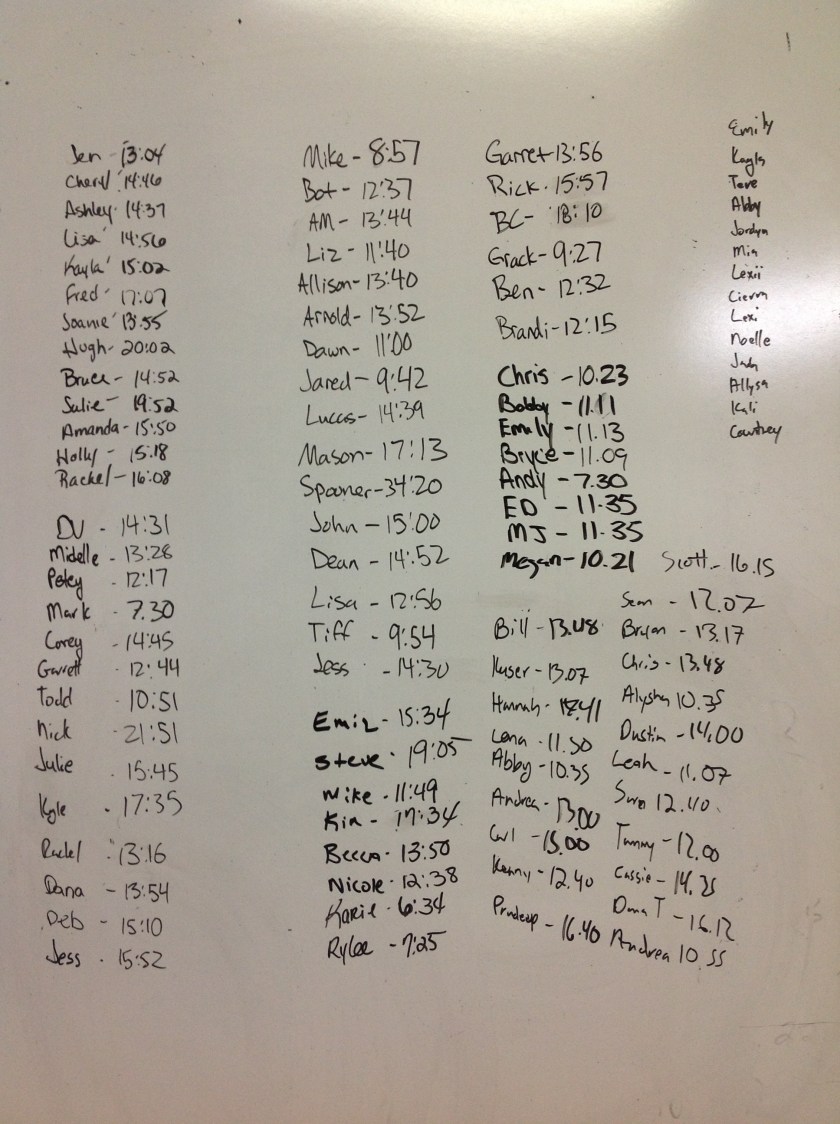 Jen - 13:04
Cheryl 14:46
Ashley 14:37
Lisa 14:56
Kayla 15:02
Fred 17:07
Joanie 13:55
Hugh - 20:02
Bruce - 14:52
Julie - 19:52
Amanda - 15:50
Holly - 15:18
Rachel - 16:08
DV - 14:31
- 13:28
- 12:17
Mark - 7.30
Corey - 14:45
Garrett - 12:44
Todd - 10:51
Nick - 21:51
Julie - 15:45
Kyle - 17:35
Rachel - 13:16
Dana - 13:54
Deb - 15:10
Jess - 15:52
Mike - 8:57
Bot - 12:37
AM - 13:44
Liz - 11:40
Allison - 13:40
Arnold - 13:52
Dawn - 11:00
Jared - 9:42
Lucas - 14:39
Mason - 17:13
Spooner - 34:20
John - 15:00
Dean - 14:52
Lisa - 12:56
Tiff - 9:54
Jess - 14:30
- 15:34
Steve - 19:05
Mike - 11:49
Kim - 17:34
Becca - 13:50
Nicole - 12:38
Karie - 6:34
Rylee - 7:25
Garret - 13:56
Rick - 15:57
BC - 18:10
Grack - 9:27
Ben - 12:32
Brandi - 12:15
Chris - 10.23
Bobby - 11.11
Emily - 11.13
Bryce - 11.09
Andy - 7.30
ED - 11.35
MJ - 11.35
Megan - 10.21
Bill - 13.48
Kuser - 13.07
Hannah - 12.41
Lena - 11.50
Abby - 10.35
Andrea - 13.00
Carl - 15.00
Kenny - 12.40
Pradeep - 16.40
Scott - 16.15
Sean - 12.02
Bryan - 13.17
Chris - 13.48
Alysha 10.35
Dustin - 14.00
Leah - 11.07
12.40
Tammy - 12.00
Cassie - 14.35
Dana T - 16.12
Andrea 10.55
Emily
Kayla
Abby
Jordyn
Mia
Lexii
Cierra
Lexi
Noelle
Allysa
Kali
Courtney